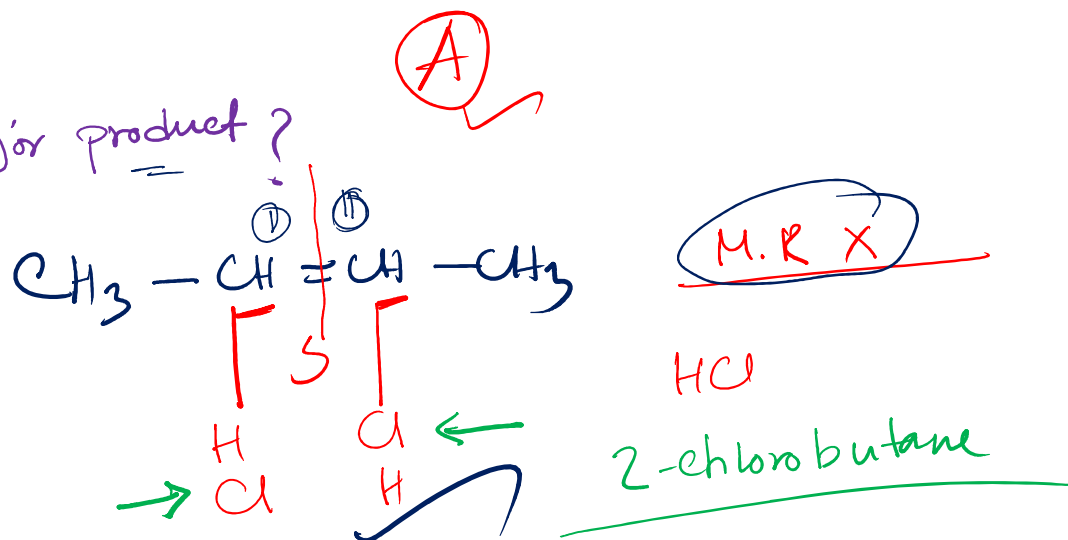 A
jor product?
I II
CH3 — CH = CH — CH3
M.R X
S
HCl
H Cl
Cl H
2-chlorobutane